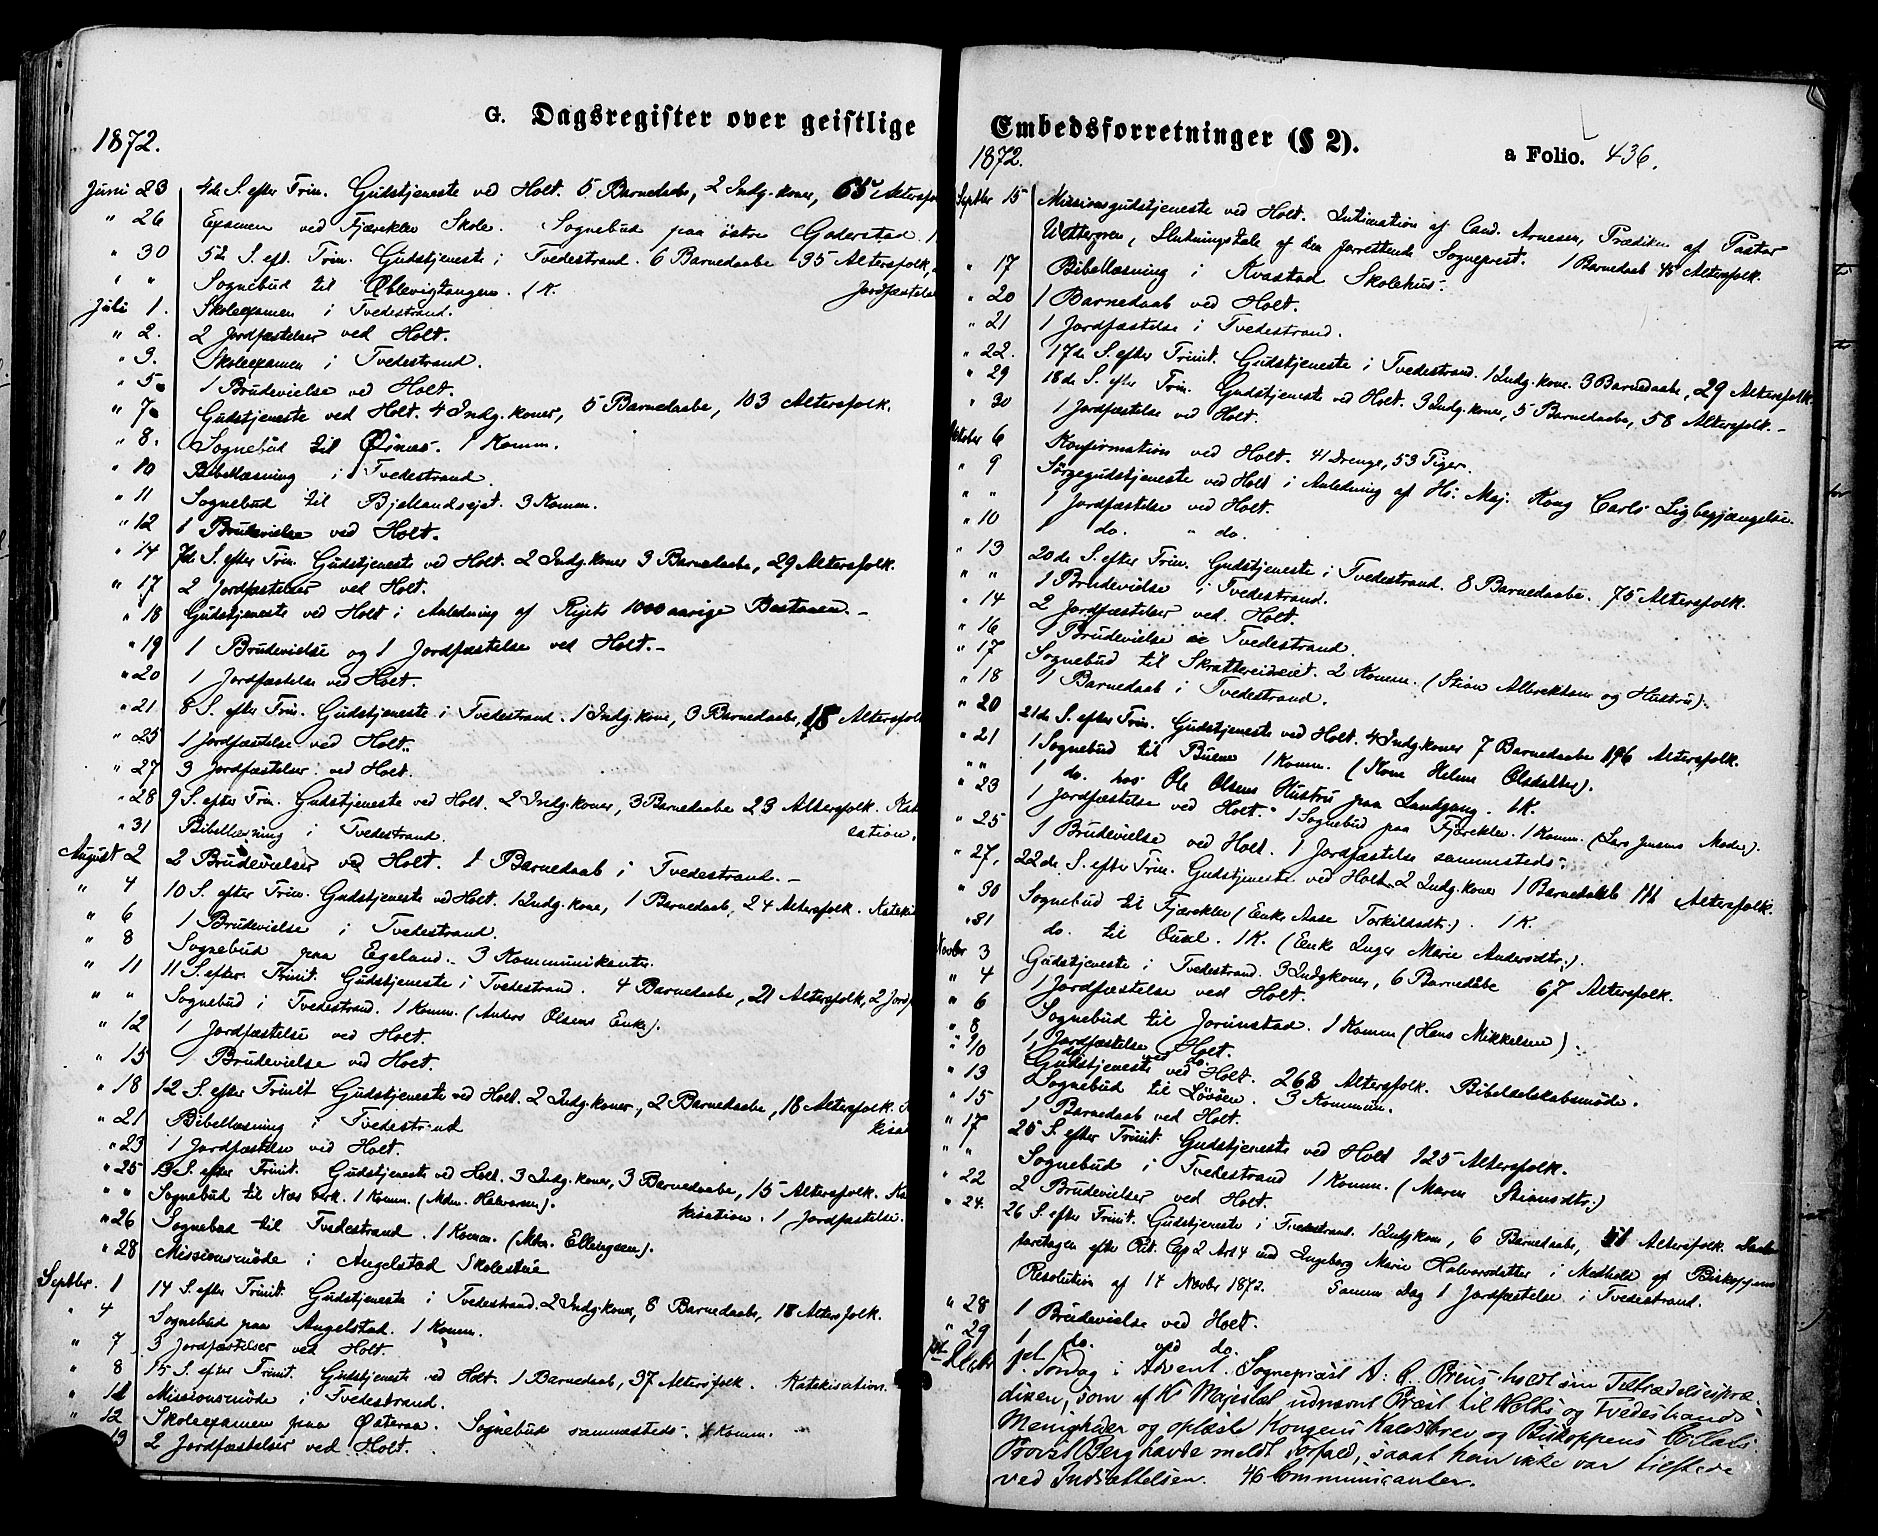 G. Dagsregister over geistlige
1872.
Juni 23 4de S. efter Trin. Gudstjeneste ved Holt. 5 Barnedaabe, 2 Indg.koner, 65 Altersfo
" 26 Examen ved Fjærekleu Skole. Sognebud paa östre Goderstad. 1
" 30 5te S. eft. Trin. Gudstjeneste i Tvedestrand. 6 Barnedaabe 35 Altersfolk,
" " Sognebud til Öblevigtangen. 1 K. Jordfæstelse
Juli 1. Skoleexamen i Tvedestrand.
" 2. 2 Jordfæstelser ved Holt.
" 3. Skoleexamen i Tvedestrand.
" 5. 1 Brudevielse ved Holt.
" 7. Gudstjeneste ved Holt. 4 Indg.koner, 5 Barnedaabe, 103 Altersfolk.
" 8. Sognebud til Örnes. 1 Komm.
" 10 Bibellæsning i Tvedestrand.
" 11 Sognebud til Bjellandsejet. 3 Komm.
" 12 1 Brudevielse ved Holt.
" 14 7de S. efter Trin. Gudstjeneste ved Holt. 2 Indg.koner 3 Barnedaabe, 29 Altersfolk.
" 17 2 Jordfæstelser ved Holt.
" 18 Gudstjeneste ved Holt i Anledning af Rigets 1000 aarige Bestaaen. –
" 19 1 Brudevielse og 1 Jordfæstelse ved Holt. –
" 20 1 Jordfæstelse ved Holt.
" 21 8 S. efter Trin. Gudstjeneste i Tvedestrand. 1 Indg.kone, 3 Barnedaabe, 15 Altersfolk
" 25 1 Jordfæstelse ved Holt.
" 27 3 Jordfæstelser ved Holt.
" 28 9 S. efter Trin. Gudstjeneste ved Holt. 2 Indg.koner, 3 Barnedaabe 23 Altersfolk. Kate
sation.
" 31 Bibellæsning i Tvedestrand.
August 2 2 Brudevielser ved Holt. 1 Barnedaab i Tvedestrand. –
" 4 10 S. efter Trin. Gudstjeneste ved Holt. 1 Indg.kone, 1 Barnedaab, 24 Altersfolk. Kateki
" 6 1 Brudevielse i Tvedestrand.
" 8 Sognebud paa Egeland. 3 Kommunikanter.
" 11 11 S. efter Trinit. Gudstjeneste i Tvedestrand. 4 Barnedaabe, 21 Altersfolk, 2 Jordf
" " Sognebud i Tvedestrand. 1 Komm. (Anders Olsens Enke).
" 12 1 Jordfæstelse ved Holt.
" 15 1 Brudevielse ved Holt.
" 18 12 S. efter Trinit Gudstjeneste ved Holt. 2 Indg.koner, 2 Barnedaabe, 18 Altersfolk.
" 21 Bibellæsning i Tvedestrand kisat
" 23 1 Jordfæstelse ved Holt.
" 25 13 S. efter Trinit. Gudstjeneste ved Holt. 3 Indg.koner, 3 Barnedaabe, 15 Altersfolk. Kate
" " Sognebud til Næs Verk. 1 Komm. (Mdm. Halvorsen). kisation. 1 Jordfæstelse.
" 26 Sognebud til Tvedestrand. 1 Komm. (Mdm. Ellingsen).
" 28 Missionsmöde i Angelstad Skolestue
Septbr. 1 14 S. efter Trinit. Gudstjeneste i Tvedestrand. 2 Indg.koner, 8 Barnedaabe, 18 Altersfolk.
" 4 Sognebud paa Angelstad. 1 Komm.
" 7 3 Jordfæstelser ved Holt.
" 8 15 S. efter Trinit. Gudstjeneste ved Holt. 1 Barnedaab, 37 Altersfolk. Katekisation.
" 11 Missionsmöde i Tvedestrand.
" 12 Skoleexamen paa Österaa. Sognebud sammesteds. 1 Komm.
13 2 Jordfæstelser ved Holt.
Embedsforretninger (§ 2).
1872. a Folio. 436.
Septbr 15 Missionsgudstjeneste ved Holt. Intimation af Cand. Arnesen, Prædiken af Pastor
Wettergren, Slutningstale af den forrettende Sogneprest. 1 Barnedaab 45 Altersfolk.
" 17 Bibellæsning i Kvastad Skolehus.
" 20 1 Barnedaab ved Holt.
" 21 1 Jordfæstelse i Tvedestrand.
" 22. 17de S. efter Trinit. Gudstjeneste i Tvedestrand. 1 Indg.kone. 3 Barnedaabe, 29 Altersfolk.
" 29 18de S. efter Trin. Gudstjeneste ved Holt. 3 Indg.koner, 5 Barnedaabe, 58 Altersfolk. –
" 30 1 Jordfæstelse ved Holt.
Oktober 6 Konfirmation ved Holt. 41 Drenge, 53 Piger.
" 9 Sörgegudstjeneste ved Holt i Anledning af Hs: Maj: Kong Carls Ligbegjængelse.
" " 1 Jordfæstelse ved Holt.
" 10 1 do. " do.
" 13 20de S. efter Trin. Gudstjeneste i Tvedestrand. 8 Barnedaabe. 75 Altersfolk.
" " 1 Brudevielse i Tvedestrand.
" 14 2 Jordfæstelser ved Holt.
" 16 1 Brudevielse i Tvedestrand.
" 17 Sognebud til Skrattereidseiet. 2 Komm. (Stian Albrektsen og Hustru).
" 18 1 Barnedaab i Tvedestrand.
" 20 21de S. efter Trin. Gudstjeneste ved Holt. 4 Indg.koner 7 Barnedaabe 196 Altersfolk.
" 21 1 Sognebud til Buene 1 Komm. (Kone Helene Olsdatter).
" " 1 do. hos Ole Olsens Hustru paa Landgang. 1 K.
" 23 1 Jordfæstelse ved Holt. 1 Sognebud paa Fjærekleu. 1 Komm. (Lars Jensens Moder).
" 25 1 Brudevielse ved Holt. 1 Jordfæstelse sammesteds.
" 27. 22de S. efter Trin. Gudstjeneste ved Holt. 2 Indg.koner 1 Barnedaab 111 Altersfolk.
" 30 Sognebud til Fjærekleu (Enke Aase Torkildsdtr.). 1 K.
" 31 do. til 1 K. (Enke Inger Marie Andersdtr.).
Novbr 3 Gudstjeneste i Tvedestrand. 3 Indgkoner, 6 Barnedåbe 67 Altersfolk.
" 4 1 Jordfæstelse ved Holt.
" 6 Sognebud til Jorunstad. 1 Komm (Hans Mikkelsen).
" 8 1 Jordfæstelse Holt.
" 9 1 do. ved do.
" 10 Gudstjeneste ved Holt. 268 Altersfolk. Bibelselskabsmöde.
" 13 Sognebud til Lövåsen. 3 Kommun.
" 15 1 Barnedaab ved Holt.
" 17 25 S. efter Trinit. Gudstjeneste ved Holt 125 Altersfolk.
" " Sognebud i Tvedestrand 1 Komm. (Maren Stiansdtr.)
" 22 2 Brudevielser ved Holt.
" 24. 26 S. efter Trinit. Gudstjeneste i Tvedestrand. 1 Indgkone, 6 Barnedaabe, Altersfolk.
foretagen efter Rit. Cp 2 Art 4 med Ingeborg Marie Halvorsdatter i Medhold af Biskoppens
Resolution af 14 Novbr 1872. Samme Dag 1 Jordfæstelse i Tvedestrand.
" 28 1 Brudevielse ved Holt.
" 29 1 do. ved do.
1st Decbr 1st Söndag i Advent. Sognepræst A. C. Preus holdt sin Tiltrædelsespræ-
diken, som af Ks Majestæt udnævnt Præst til Holts og Tvedestrands
Menigheder og oplæste Kongens Kaldsbrev og Biskoppens Collats
Provst Berg havde meldt Forfald, saaat han ikke var tilstede
ved Indsættelsen. 46 Communicanter.